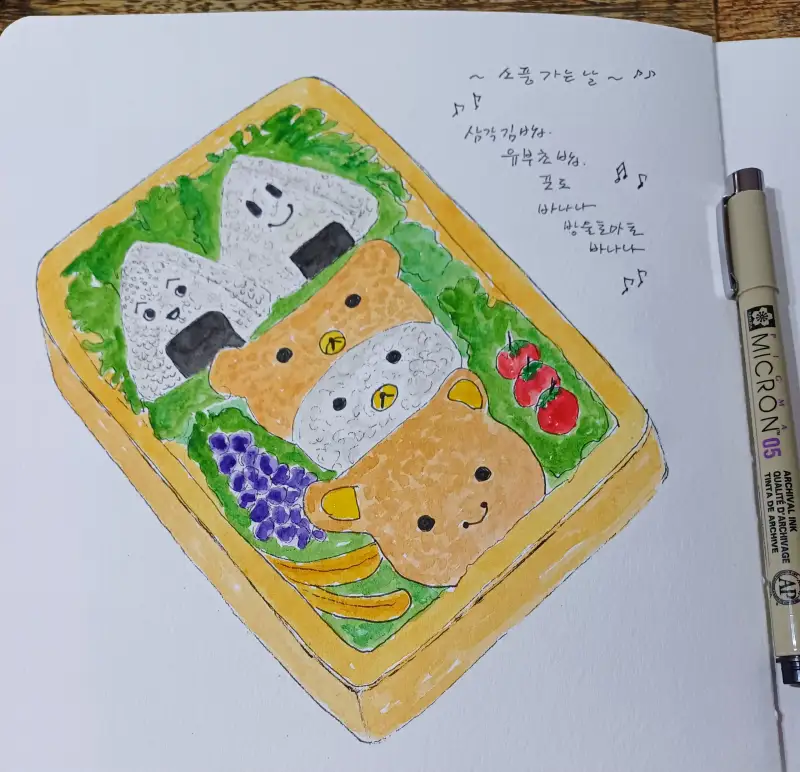 ~ 소풍 가는 날 ~ ♪♪♪
♪ ♪
삼각김밥.
유부초밥.
♪ ♪
포도
바나나
방울토마토
바나나
♪ ♪
SAKURA
PIGMA
MICRON™ 05
ARCHIVAL INK
QUALITÉ D'ARCHIVAGE
TINTA DE ARCHIVE
AP